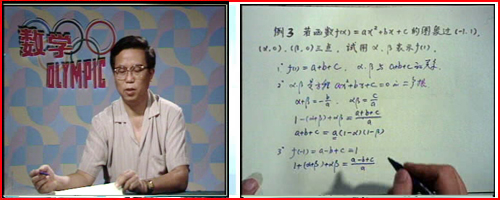 数学
OLYMPIC
例3 若函数 f(x)=ax²+bx+c 的图象过 (-1,1),
(α,0), (β,0) 三点, 试用 α、β 表示 f(1).
1° f(1)=a+b+c.
2° α、β 是方程 ax²+bx+c=0 的二个根
α+β=-b/a, αβ=c/a
1-(α+β)+αβ=(a+b+c)/a
a+b+c=a(1-α)(1-β)
3° f(-1)=a-b+c=1
1+(α+β)+αβ=(a-b+c)/a